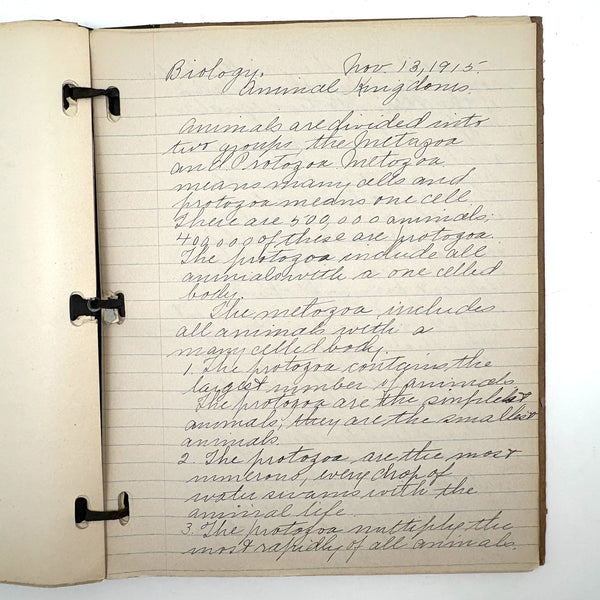 Biology. Nov. 13, 1915.
Animal Kingdoms.
Animals are divided into
two groups, the Metazoa
and Protozoa Metozoa
means many cells and
protozoa means one cell.
There are 500,000 animals;
400,000 of these are protozoa.
The protozoa include all
animals with a one celled
body.
The metozoa includes
all animals with a
many celled body.
1. The protozoa contains the
largest number of animals.
The protozoa are the simplest
animals; they are the smallest
animals.
2. The protozoa are the most
numerous, every drop of
water swams with the
animal life.
3. The protozoa multiply the
most rapidly of all animals.